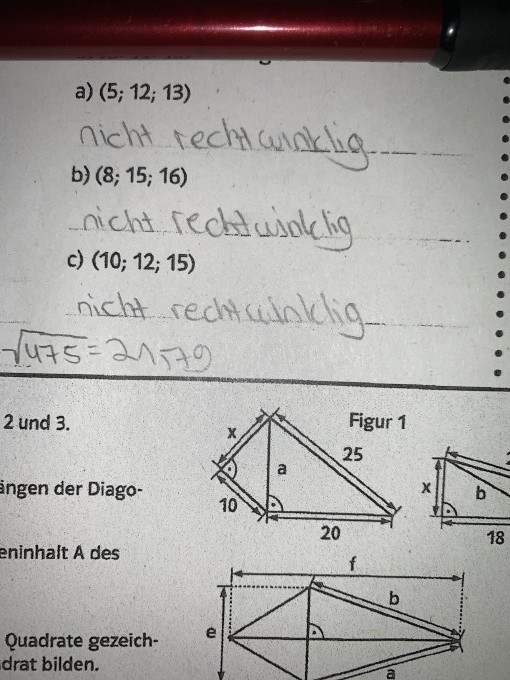 a) (5; 12; 13)
nicht rechtwinklig
b) (8; 15; 16)
nicht rechtwinklig
c) (10; 12; 15)
nicht rechtwinklig
√475 = 21,79
2 und 3.
Figur 1
x
25
a
ängen der Diago-
10
20
x
b
18
eninhalt A des
f
b
e
Quadrate gezeich-
drat bilden.
a